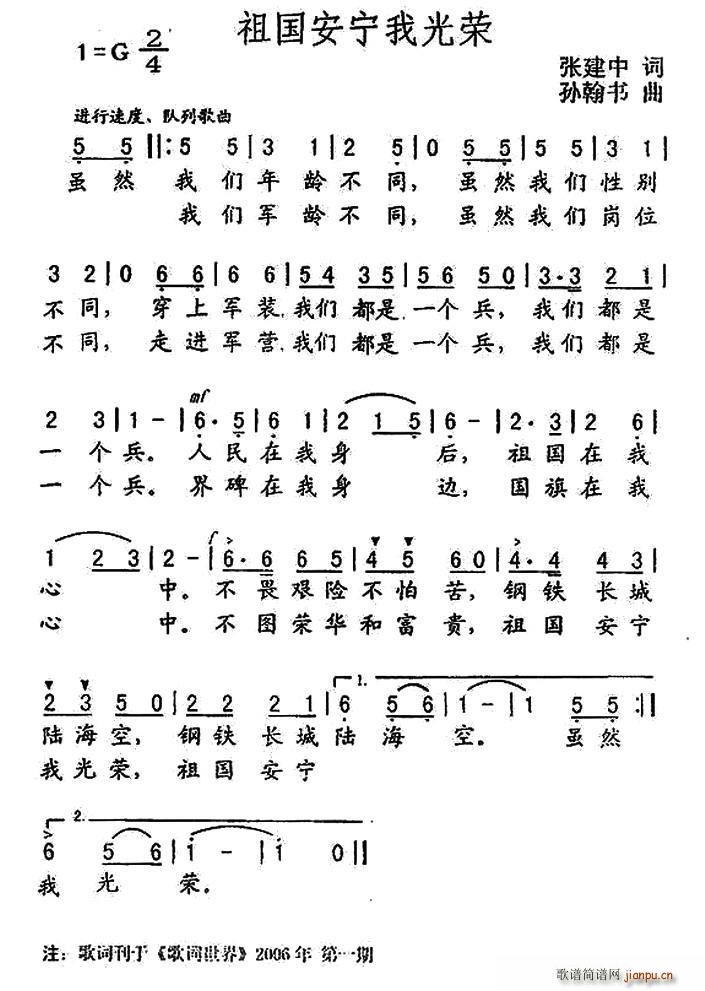 祖国安宁我光荣
1=G 2/4
张建中 词
孙翰书 曲
进行速度、队列歌曲
5 5 ‖: 5 5 | 3 1 | 2 5 | 0 5 5 | 5 5 | 3 1 |
虽然 我们年龄不同，虽然我们性别
我们军龄不同，虽然我们岗位
3 2 | 0 6 6 | 6 6 | 5 4 3 5 | 5 6 5 0 | 3·3 2 1 |
不同，穿上军装,我们都是一个兵，我们都是
不同，走进军营,我们都是一个兵，我们都是
mf
2 3 | 1 - | 6·5 | 6 1 | 2 1 5 | 6 - | 2·3 | 2 6 |
一个兵。人民在我身 后，祖国在我
一个兵。界碑在我身 边，国旗在我
f
1 2 3 | 2 - | 6·6 6 5 | 4 5 6 0 | 4·4 4 3 |
心 中。不畏艰险不怕苦，钢铁长城
心 中。不图荣华和富贵，祖国安宁
1.
2 3 5 0 | 2 2 2 1 | 6 5 6 | 1 - | 1 5 5 :‖
陆海空，钢铁长城陆海空。虽然
我光荣，祖国安宁
2.
6 5 6 | i - | i 0 ‖
我光荣。
注：歌词刊于《歌词世界》2006年 第一期
歌谱简谱网
jianpu.cn